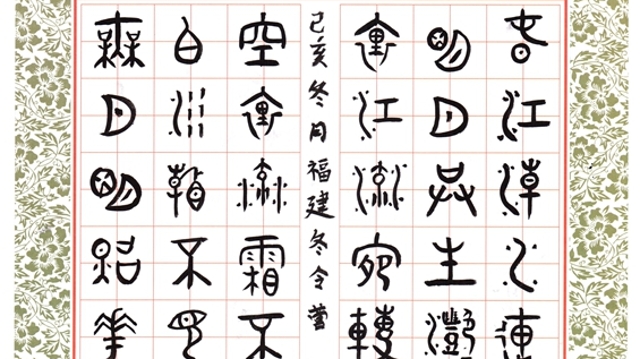 春江潮水連
明月共生灩
裏江流宛轉
己亥冬月福建冬令營
空裏流霜不
白沙看不見
無月明照華